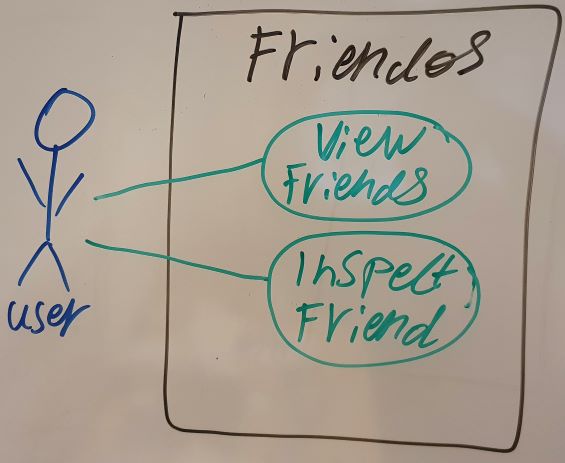 Friendos
View
Friends
Inspect
Friend
user